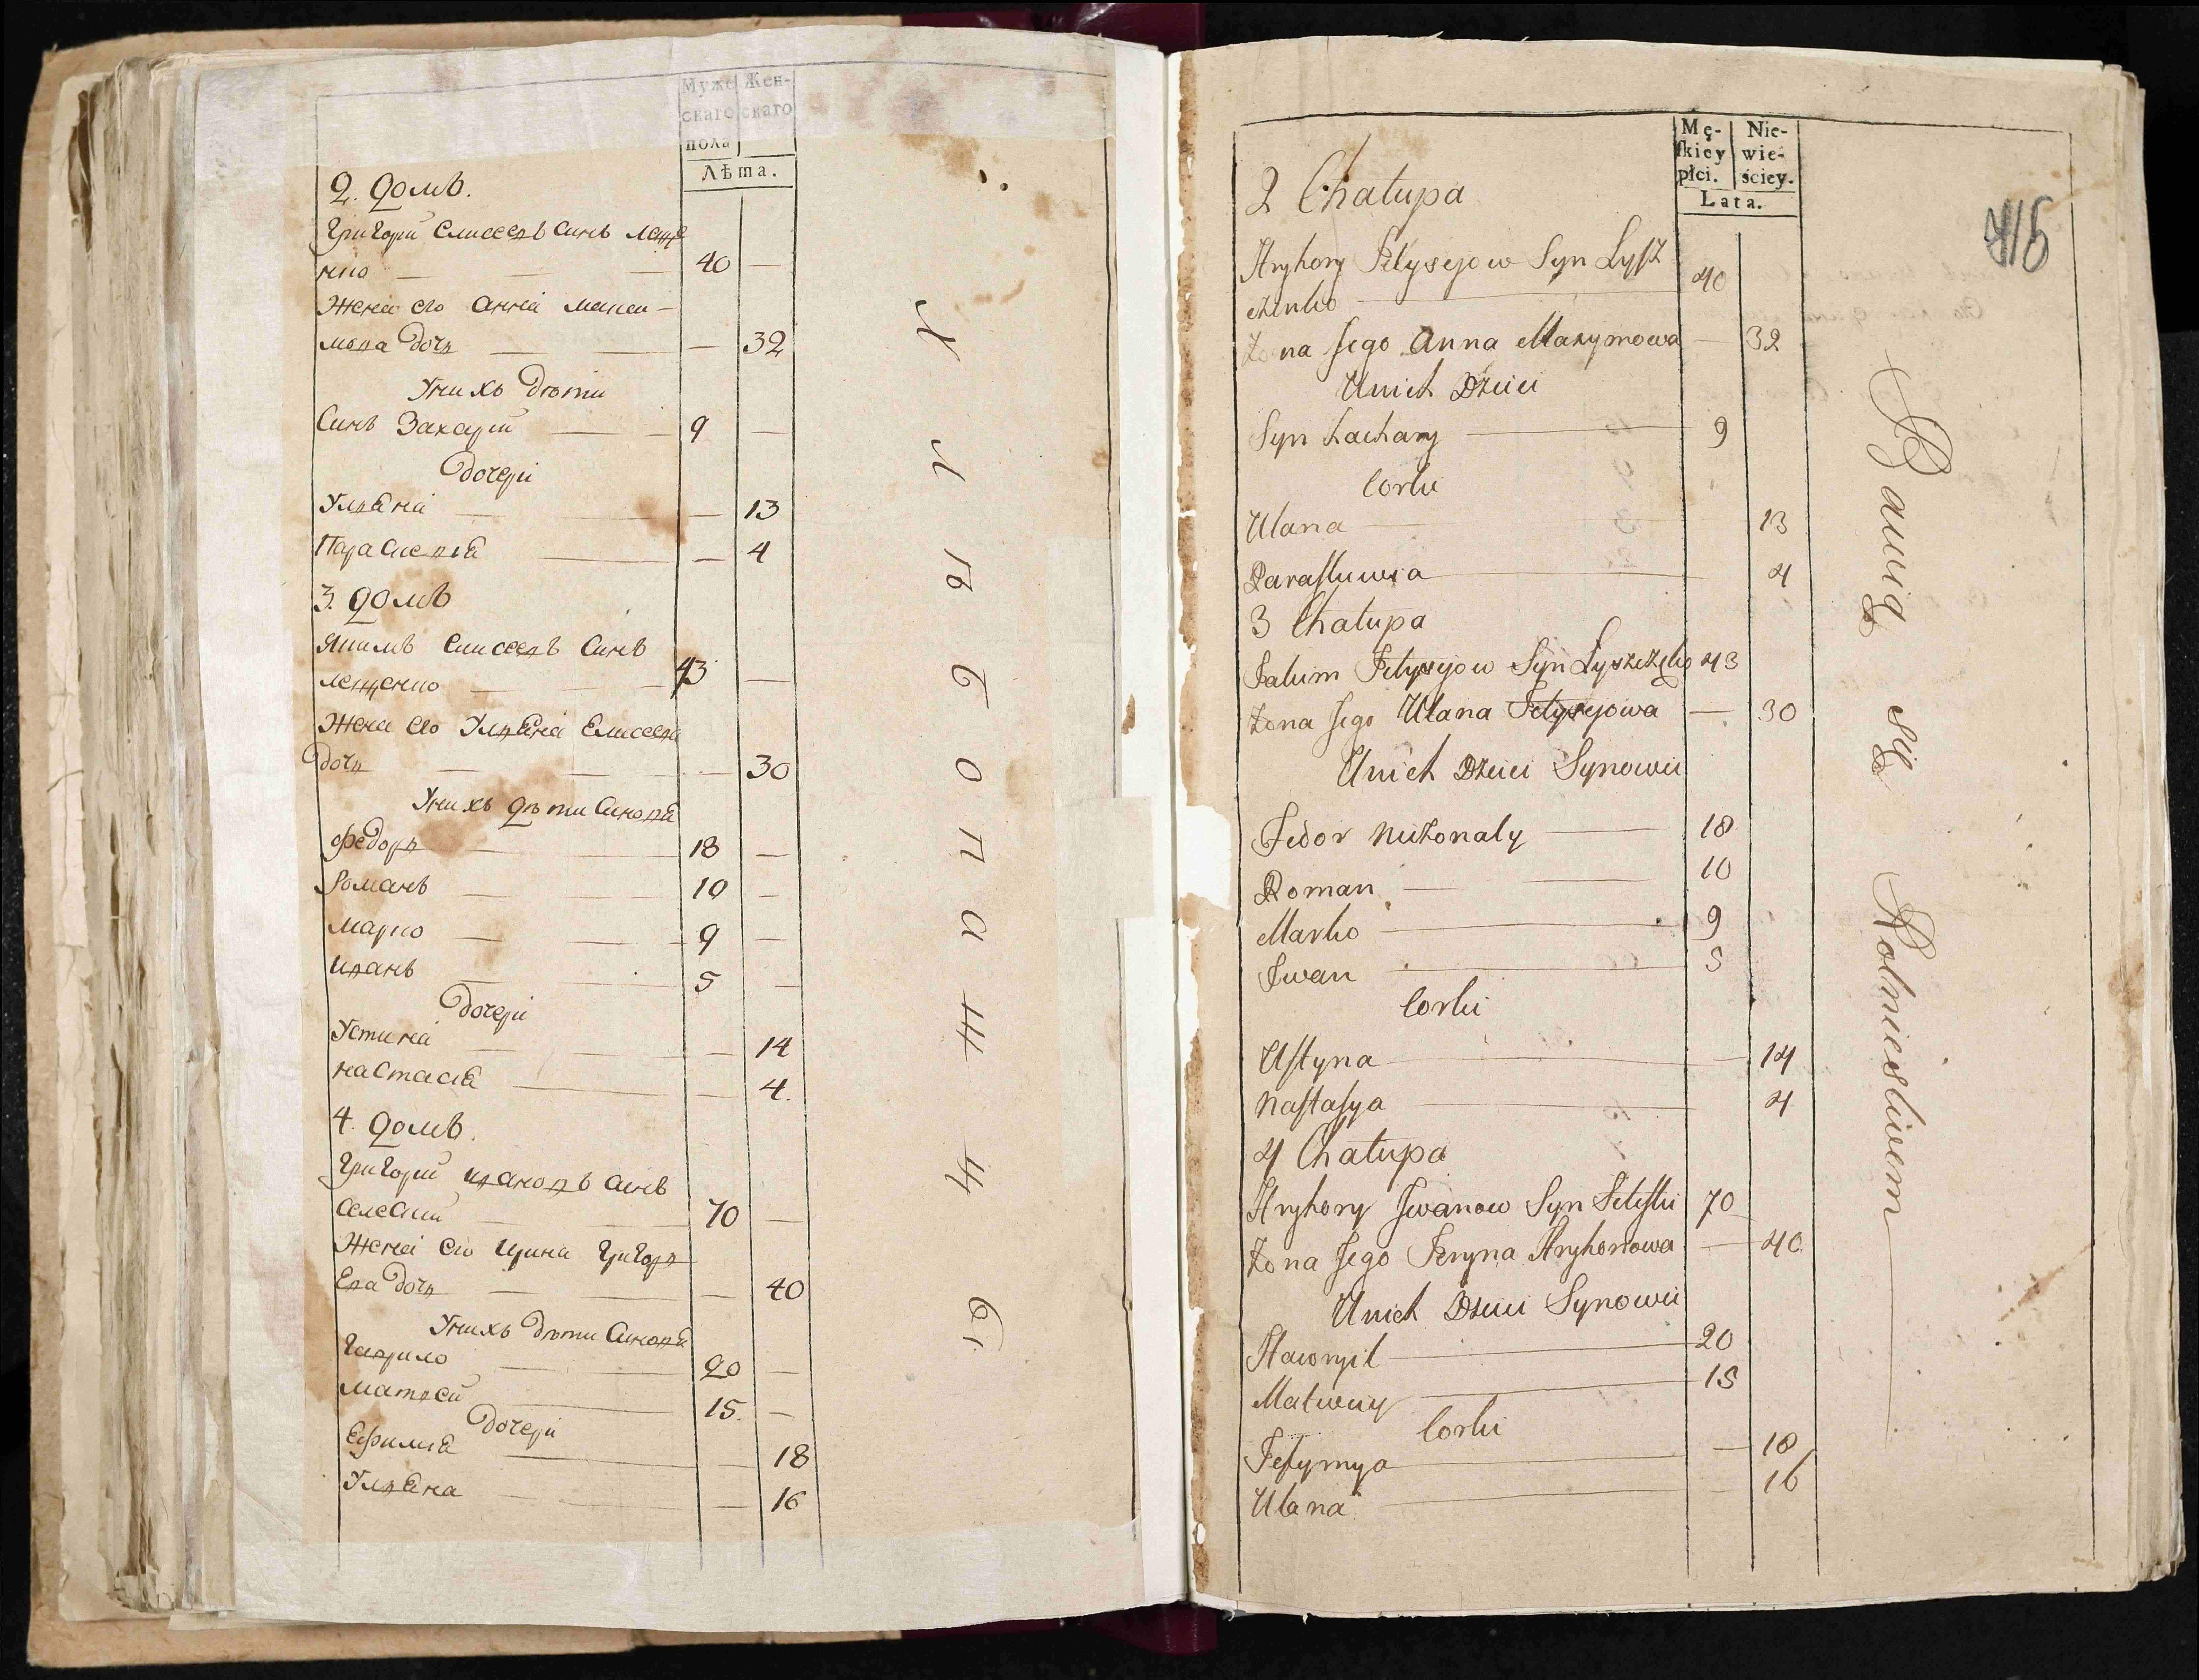 Муже
скаго
пола
Жен-
скаго
Лѣта.
2. домъ.
Григорий Елисеевъ синъ Леще
нко — 40 —
Жена его анна макси-
мова дочь — 32
У нихъ дѣти
Синъ Захарий — 9 —
дочери
Уляна — 13
Параскевія — 4
3. домъ
Якимъ Елисеевъ Синъ
лещенко — 43 —
Жена его Уляна Елисеева
дочь — 30
У нихъ дѣти Синовя
Федоръ — 18 —
Романъ — 10 —
Марко — 9 —
иванъ — 5 —
дочери
Устина — 14
настасія — 4.
4. домъ.
Григорий ивановъ синъ
70 —
Жена его ирина Григорь
Ева дочь — 40
У нихъ дѣти Синовя
Гаврило — 20 —
матвей — 15. —
дочери
Ефимія — 18
Уляна — 16
Mę-
skiey
płci.
Nie-
wie-
ściey.
Lata.
416
2 Chałupa
Hryhory Jełysejow Syn Łyſz
czenko — 40
Żona Jego Anna Maxymowa — 32
U nich Dzieci
Syn Zachary — 9
Corki
Ulana — 13
Paraſkiewia — 4
3 Chałupa
Jakim Jełysejow Syn Łyszczęko 43
Żona Jego Ulana Jełysejowa — 30
U nich Dzieci Synowie
Fedor nieżonaty — 18
Roman — 10
Marko — 9
Jwan — 5
Corki
Uſtyna — 14
Naſtaſya — 4
4 Chałupa
Hryhory Jwanow Syn 70
Żona Jego Jeryna Hryhorowa — 40
U nich Dzieci Synowie
Hawryił — 20
Matwiey — 15
Corki
Jefymya — 18
Ulana — 16
Bawią się Rolnictwem